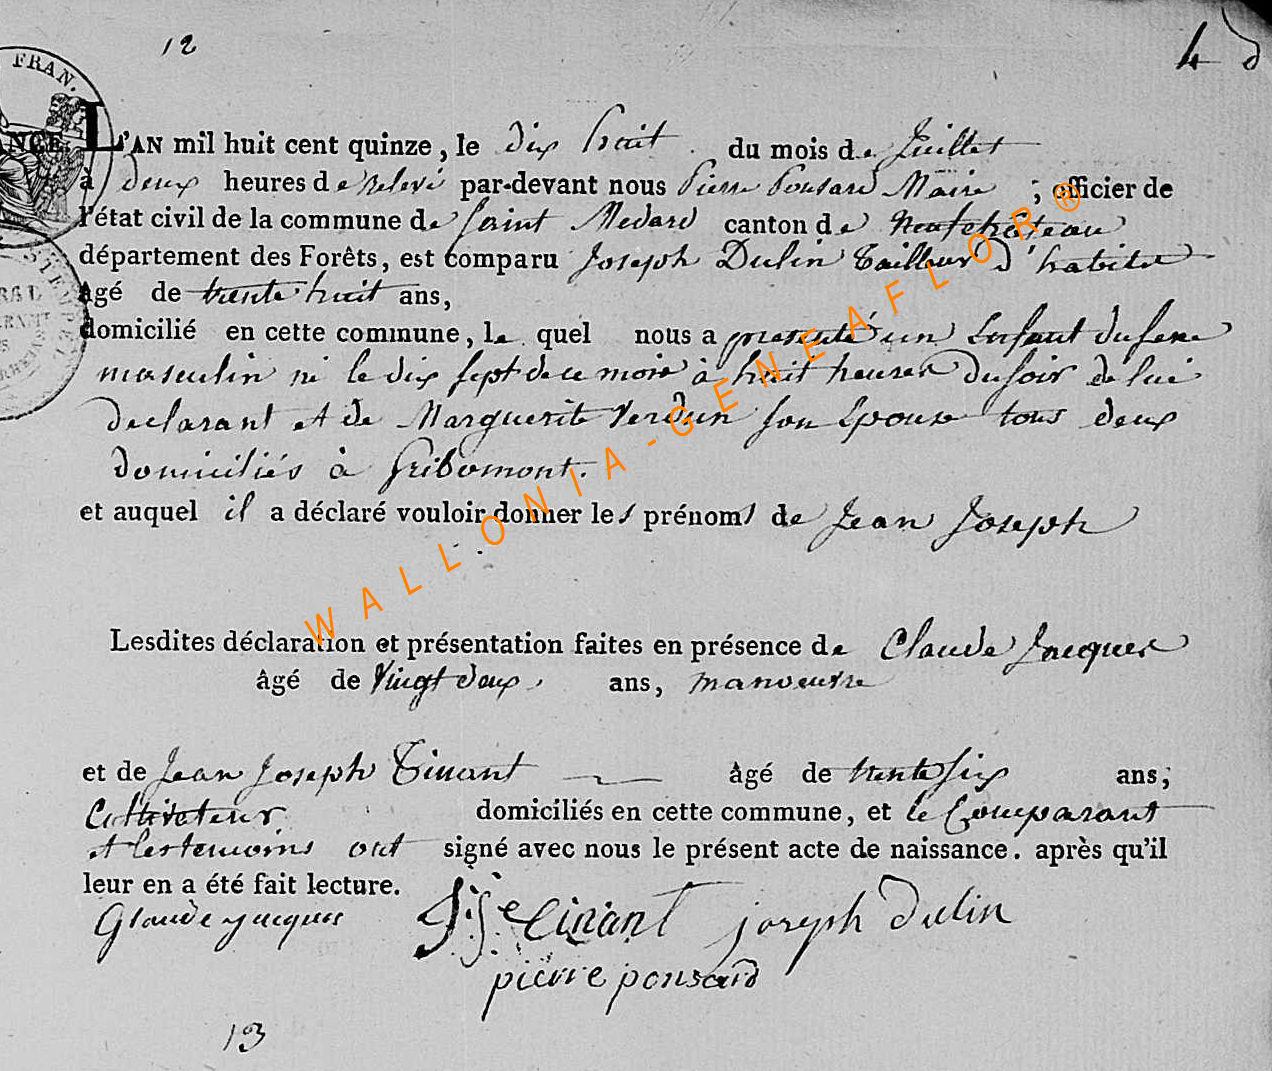 12
4 d
FRAN.
ANCE.
L'AN mil huit cent quinze, le dix huit du mois de Juillet
à deux heures de relevé par-devant nous Pierre Ponsard Maire ; officier de
l'état civil de la commune de Saint Medard canton de Neufchateau
département des Forêts, est comparu Joseph Dulin Tailleur d'habits
âgé de trente huit ans,
domicilié en cette commune, le quel nous a presenté un Enfant du sexe
masculin né le dix sept de ce mois à huit heures du soir de lui
declarant et de Marguerite Verdun son Epouse tous deux
domiciliés à Gribomont.
et auquel il a déclaré vouloir donner les prénoms de Jean Joseph
Lesdites déclaration et présentation faites en présence de Claude Jacques
âgé de Vingt deux ans, manoeuvre
et de Jean Joseph Tinant âgé de trente six ans;
Cultivateur domiciliés en cette commune, et le Comparant
et les temoins ont signé avec nous le présent acte de naissance. après qu'il
leur en a été fait lecture.
Glaude jacques J: Je Tinant joseph dulin
pierre ponsard
13
WALLONIA-GENEAFLOR®